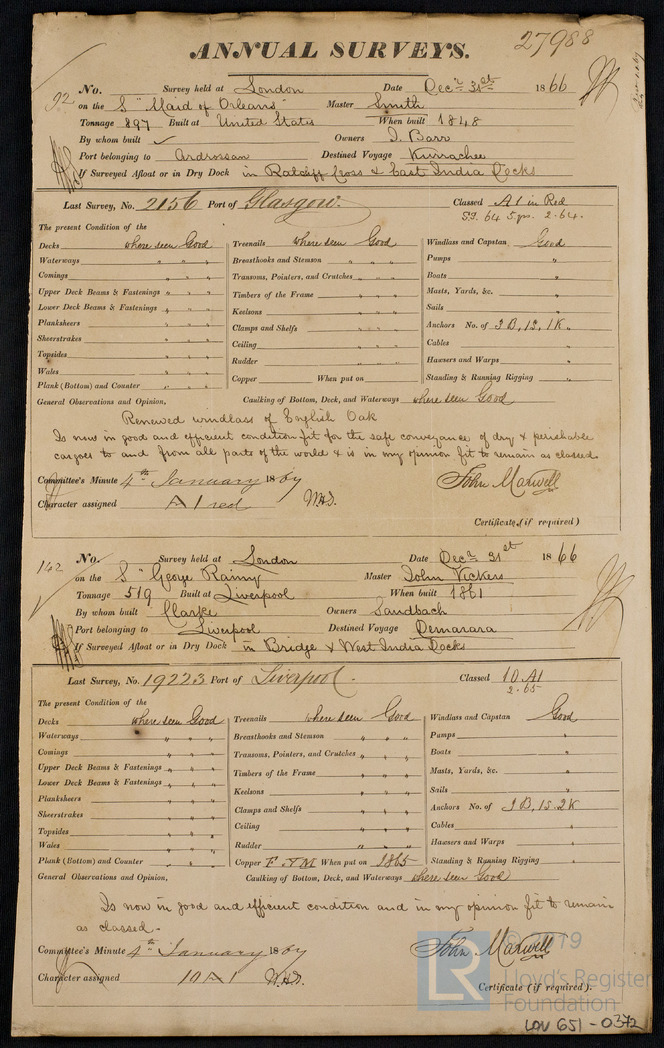 27988
ANNUAL SURVEYS.
92 No. Survey held at London Date Decr 31st 1866
on the S "Maid of Orleans" Master Smith
Tonnage 897 Built at United States When built 1848
By whom built ✓ Owners J. Barr
Port belonging to Ardrossan Destined Voyage Kurrachee
If Surveyed Afloat or in Dry Dock in Ratcliff Cross & East India Docks
Last Survey, No. 2156 Port of Glasgow. Classed A1 in Red
SS. 64 5 yrs. 2.64.
The present Condition of the
Decks where seen Good Treenails where seen Good Windlass and Capstan Good
Waterways " " " Breasthooks and Stemson " " " Pumps "
Comings " " " Transoms, Pointers, and Crutches " " " Boats "
Upper Deck Beams & Fastenings " " " Timbers of the Frame " " " Masts, Yards, &c. "
Lower Deck Beams & Fastenings " " " Keelsons " " " Sails "
Planksheers " " " Clamps and Shelfs " " " Anchors No. of 3B, 1S, 1K "
Sheerstrakes " " " Ceiling " " " Cables "
Topsides " " " Rudder " " " Hawsers and Warps "
Wales " " "
Plank (Bottom) and Counter " " " Copper When put on Standing & Running Rigging "
General Observations and Opinion, Caulking of Bottom, Deck, and Waterways where seen Good
Renewed windlass of English Oak
Is now in good and efficient condition fit for the safe conveyance of dry & perishable
cargoes to and from all parts of the world & is in my opinion fit to remain as classed
Committee's Minute 4th January 1867 John Maxwell
Character assigned A1 red
Certificate (if required)
142 No. Survey held at London Date Decr 31st 1866
on the S "George Rainy" Master John Vickers
Tonnage 519 Built at Liverpool When built 1861
By whom built Clarke Owners Sandbach
Port belonging to Liverpool Destined Voyage Demarara
If Surveyed Afloat or in Dry Dock in Bridge & West India Docks
Last Survey, No. 19223 Port of Liverpool. Classed 10 A1
2.65
The present Condition of the
Decks where seen Good Treenails where seen Good Windlass and Capstan Good
Waterways " " " Breasthooks and Stemson " " " Pumps "
Comings " " " Transoms, Pointers, and Crutches " " " Boats "
Upper Deck Beams & Fastenings " " " Timbers of the Frame " " " Masts, Yards, &c. "
Lower Deck Beams & Fastenings " " " Keelsons " " " Sails "
Planksheers " " " Clamps and Shelfs " " " Anchors No. of 3B, 1S. 2K
Sheerstrakes " " " Ceiling " " " Cables "
Topsides " " " Rudder " " " Hawsers and Warps "
Wales " " "
Plank (Bottom) and Counter " " Copper F & M When put on 1865 Standing & Running Rigging "
General Observations and Opinion, Caulking of Bottom, Deck, and Waterways where seen Good
Is now in good and efficient condition and in my opinion fit to remain
as classed.
Committee's Minute 4th January 1867 John Maxwell
Character assigned 10 A1
Certificate (if required).
© 2019
LR Lloyd's Register
Foundation
LON 651-0372